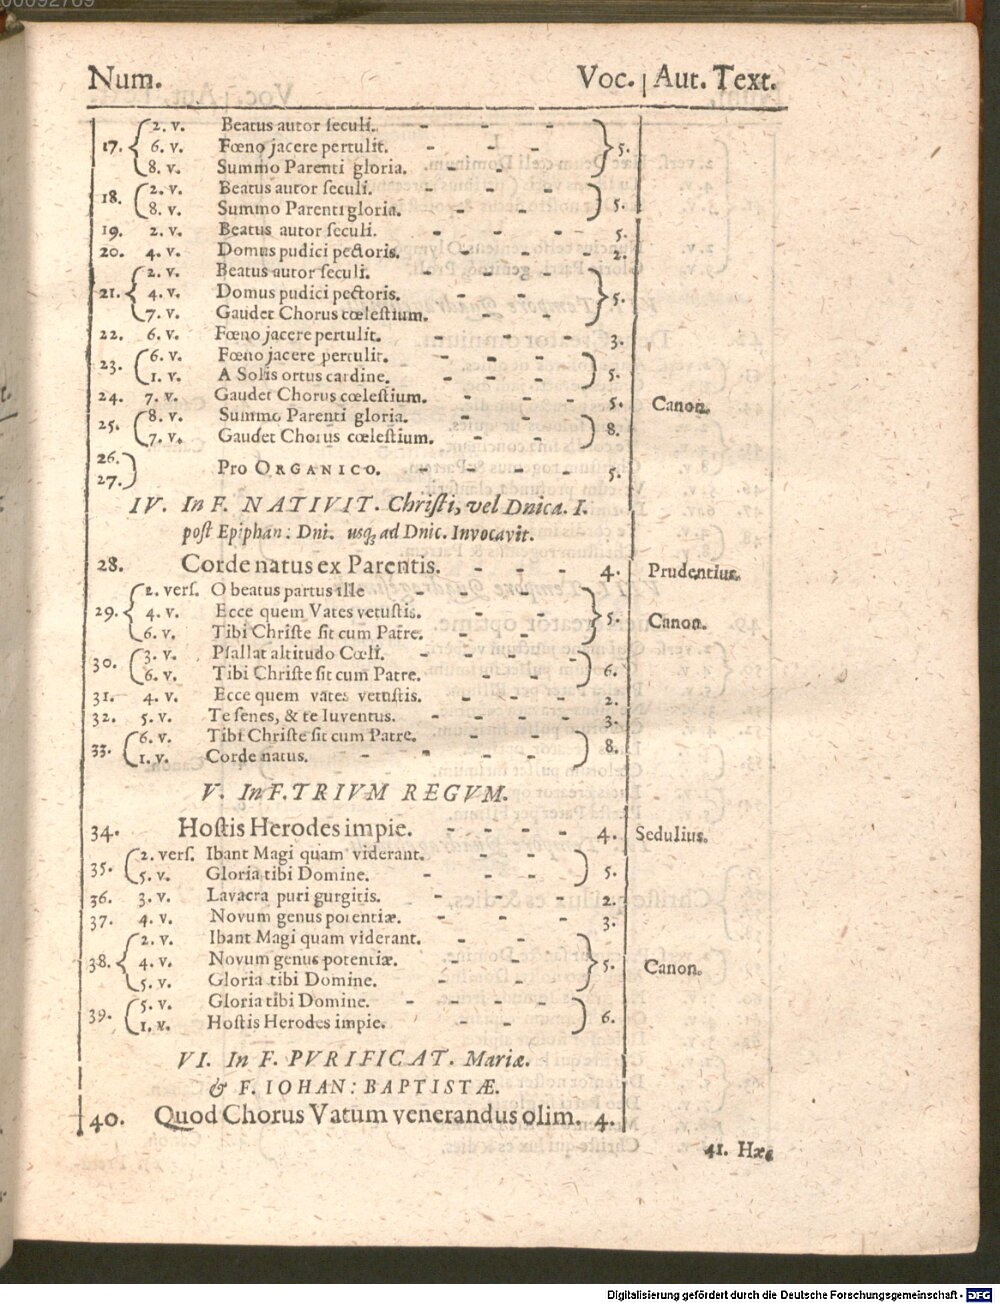 00092769
Num. Voc. Aut. Text.
17. 2. v. Beatus autor seculi. - - - 5.
6. v. Fœno jacere pertulit. - - -
8. v. Summo Parenti gloria. - - -
18. 2. v. Beatus autor seculi. - - - 5.
8. v. Summo Parenti gloria. - - -
19. 2. v. Beatus autor seculi. - - - - 5.
20. 4. v. Domus pudici pectoris. - - - - 2.
21. 2. v. Beatus autor seculi. - - - 5.
4. v. Domus pudici pectoris. - - -
7. v. Gaudet Chorus cœlestium. - - -
22. 6. v. Fœno jacere pertulit. - - - - 3.
23. 6. v. Fœno jacere pertulit. - - - 5.
1. v. A Solis ortus cardine. - - -
24. 7. v. Gaudet Chorus cœlestium. - - - 5. Canon.
25. 8. v. Summo Parenti gloria. - - - 8.
7. v. Gaudet Chorus cœlestium. - - -
26.
27. Pro ORGANICO. - - - - 5.
IV. In F. NATIVIT. Christi, vel Dnica. I.
post Epiphan: Dni. usq; ad Dnic. Invocavit.
28. Corde natus ex Parentis. - - - - 4. Prudentius.
29. 2. vers. O beatus partus ille - - - 5. Canon.
4. v. Ecce quem Vates vetustis. - - -
6. v. Tibi Christe sit cum Patre. - - -
30. 3. v. Psallat altitudo Cœli. - - - - 6.
6. v. Tibi Christe sit cum Patre. - - -
31. 4. v. Ecce quem vates vetustis. - - - - 2.
32. 5. v. Te senes, & te Iuventus. - - - - 3.
33. 6. v. Tibi Christe sit cum Patre. - - - 8.
1. v. Corde natus. - - - -
V. In F. TRIVM REGVM.
34. Hostis Herodes impie. - - - - 4. Sedulius.
35. 2. vers. Ibant Magi quam viderant. - - 5.
5. v. Gloria tibi Domine. - - -
36. 3. v. Lavacra puri gurgitis. - - - - 2.
37. 4. v. Novum genus potentiæ. - - - 3.
38. 2. v. Ibant Magi quam viderant. - - - 5. Canon.
4. v. Novum genus potentiæ. - - -
5. v. Gloria tibi Domine. - - -
39. 5. v. Gloria tibi Domine. - - - - 6.
1. v. Hostis Herodes impie. - - -
VI. In F. PVRIFICAT. Mariæ.
& F. IOHAN: BAPTISTÆ.
40. Quod Chorus Vatum venerandus olim. 4.
41. Hæc
Digitalisierung gefördert durch die Deutsche Forschungsgemeinschaft - DFG